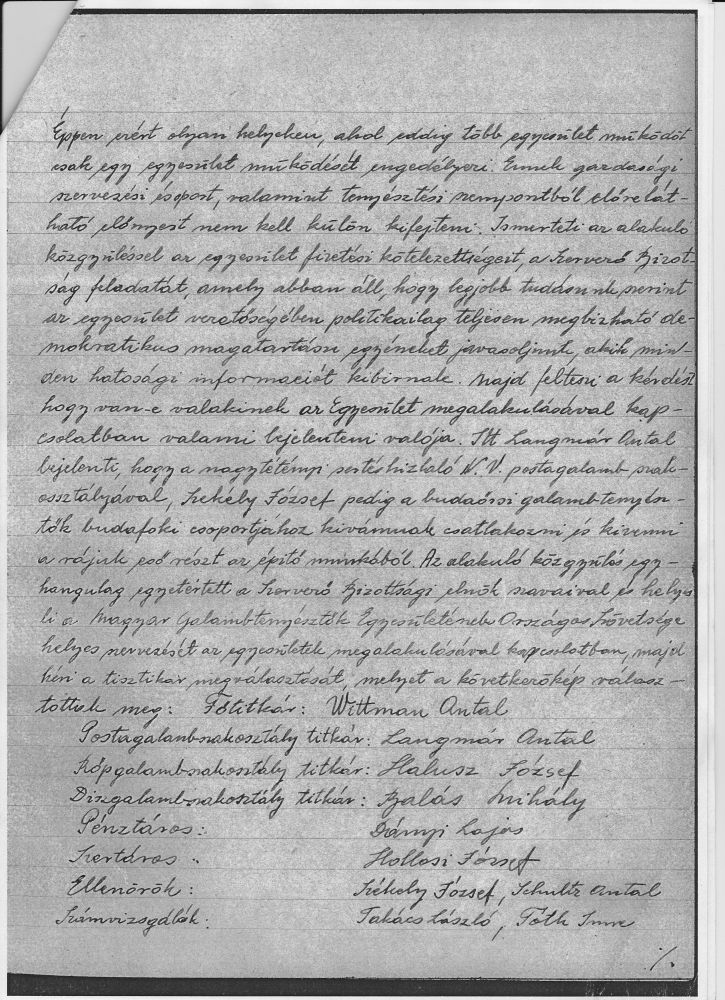 Éppen ezért olyan helyeken, ahol eddig több egyesület müködöt
csak egy egyesület müködését engedélyezi. Ennek gazdasági
szervezési ésopost, valamint tenyésztési szempontból előrelát-
ható előnyeit nem kell külön kifejteni. Ismerteti az alakuló
közgyüléssel az egyesület fizetési kötelezettségeit, a Szervező Bizott-
ság feladatát, amely abban áll, hogy legjobb tudásunk szerint
az egyesület vezetőségében politikailag teljesen megbizható de-
mokratikus magatartásu egyéneket javasoljunk, akik min-
den hatósági informaciót kibirnak. Majd felteszi a kérdést
hogy van-e valakinek az Egyesület megalakulásával kap-
csolatban valami bejelenteni valója. Itt Langmár Antal
bejelenti, hogy a nagytétényi sertéshizlaló N.V. postagalamb szak-
ossztályával, Székely József pedig a budaörsi galambtenyész-
tők budafoki csoportjához kivánnak csatlakozni és kivenni
a rájuk eső részt az épitő munkából. Az alakuló közgyülés egy-
hangulag egyetértett a Szervező Bizottsági elnök szavaival és helyes
li a Magyar Galambtenyésztők Egyesületének Országos Szövetsége
helyes szervezését az egyesületek megalakulásával kapcsolatban, majd
kéri a tisztikar megválasztását, melyet a következőkép válasz-
tottuk meg: Főtitkár: Wittman Antal
Postagalambszakosztály titkár: Langmár Antal
Röpgalambszakosztály titkár: Halusz József
Diszgalambszakosztály titkár: Balás Mihály
Pénztáros: Dányi Lajos
Szertáros " Hollosi József
Ellenörök: Székely József, Schultz Antal
Számvizsgálók: Takács László, Tóth Imre
./.